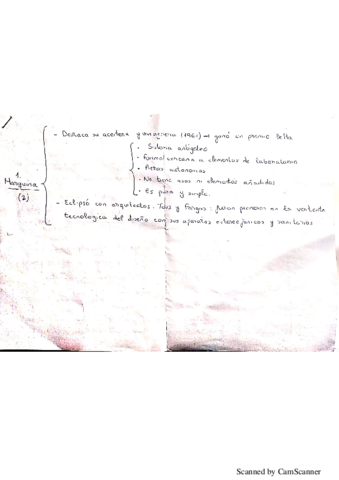 1.
Marquina
(2)
- Destaca su aceitera y vinagrera (1961) → ganó un premio Delta
• Sistema antigoteo
• Formal cercana a elementos de laboratorio
• Piezas autónomas
- No tiene asas ni elementos añadidos
• Es pura y simple
- Eclipsó con arquitectos. Tous y Fargas: fueron pioneros en la vertiente
tecnológica del diseño con sus aparatos estereofónicos y sanitarios
Scanned by CamScanner